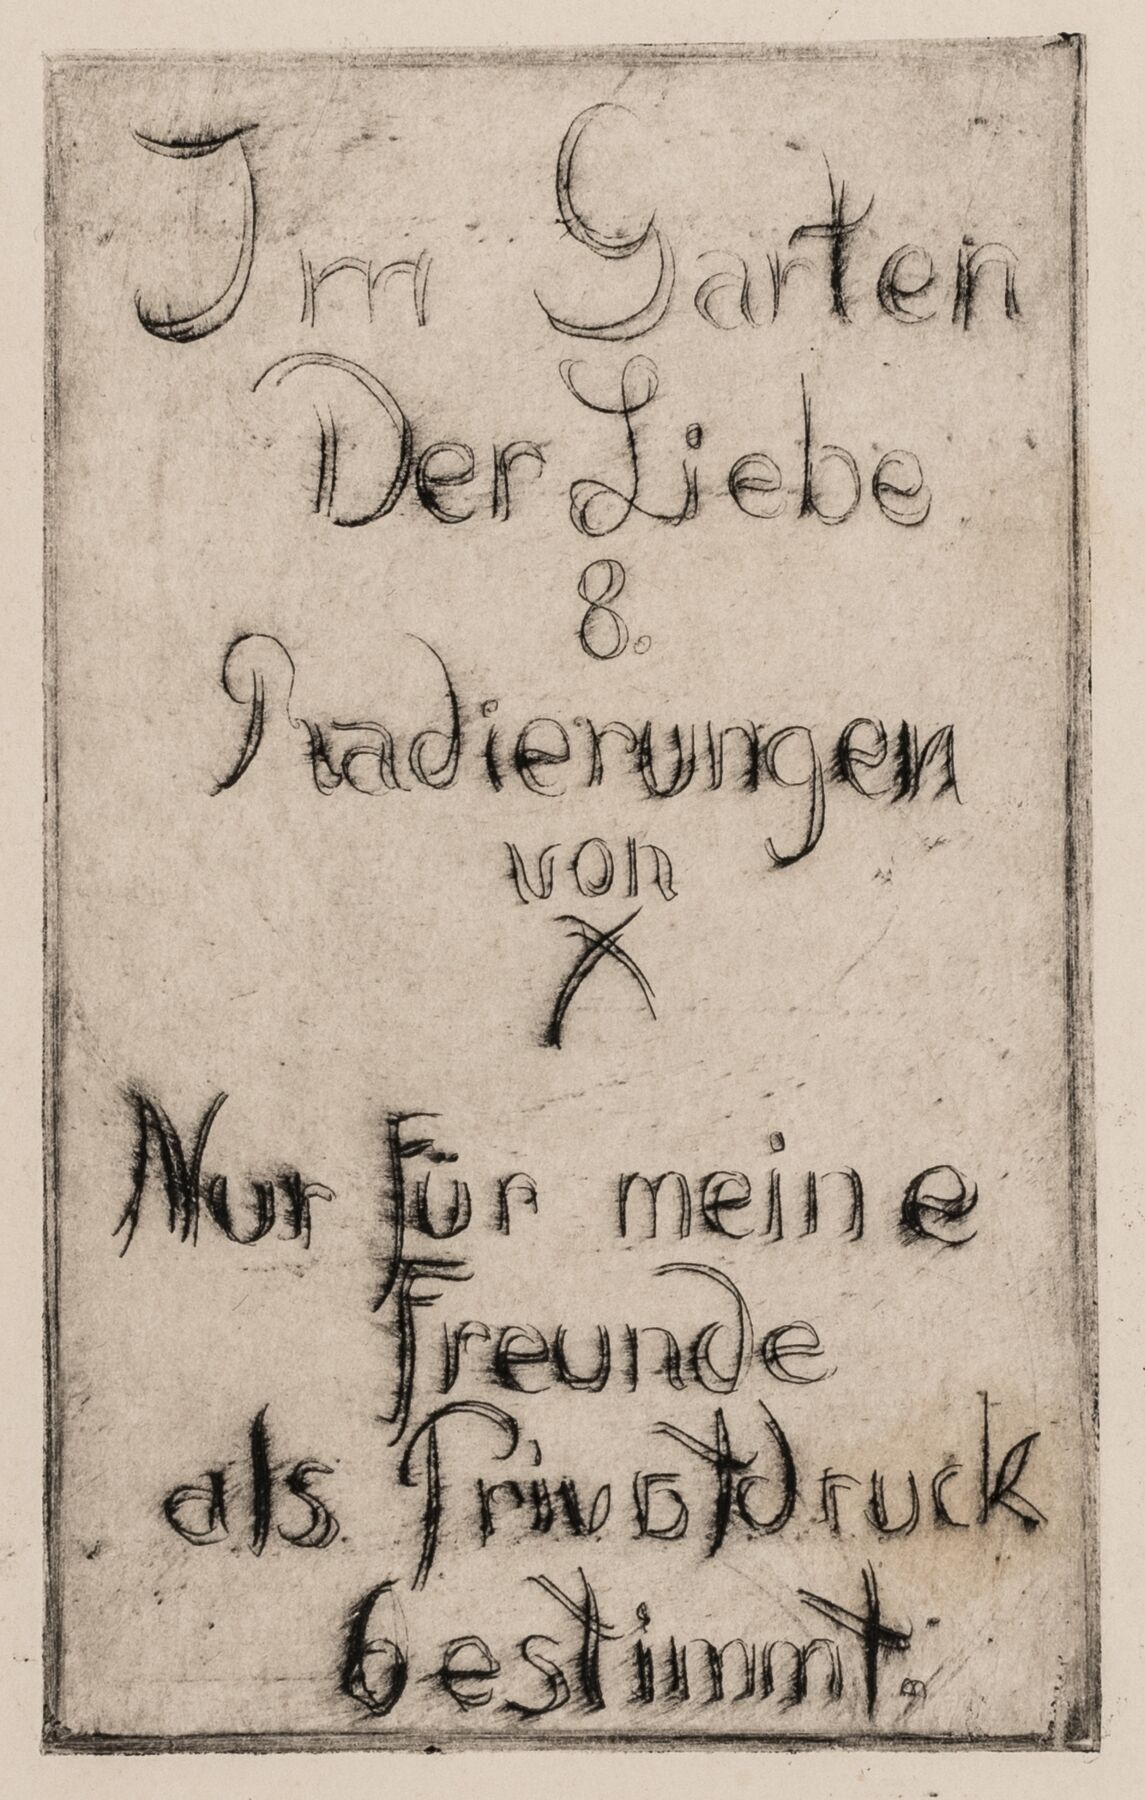 Im Garten
Der Liebe
8.
Radierungen
von
X
Nur Für meine
Freunde
als Privatdruck
bestimmt.